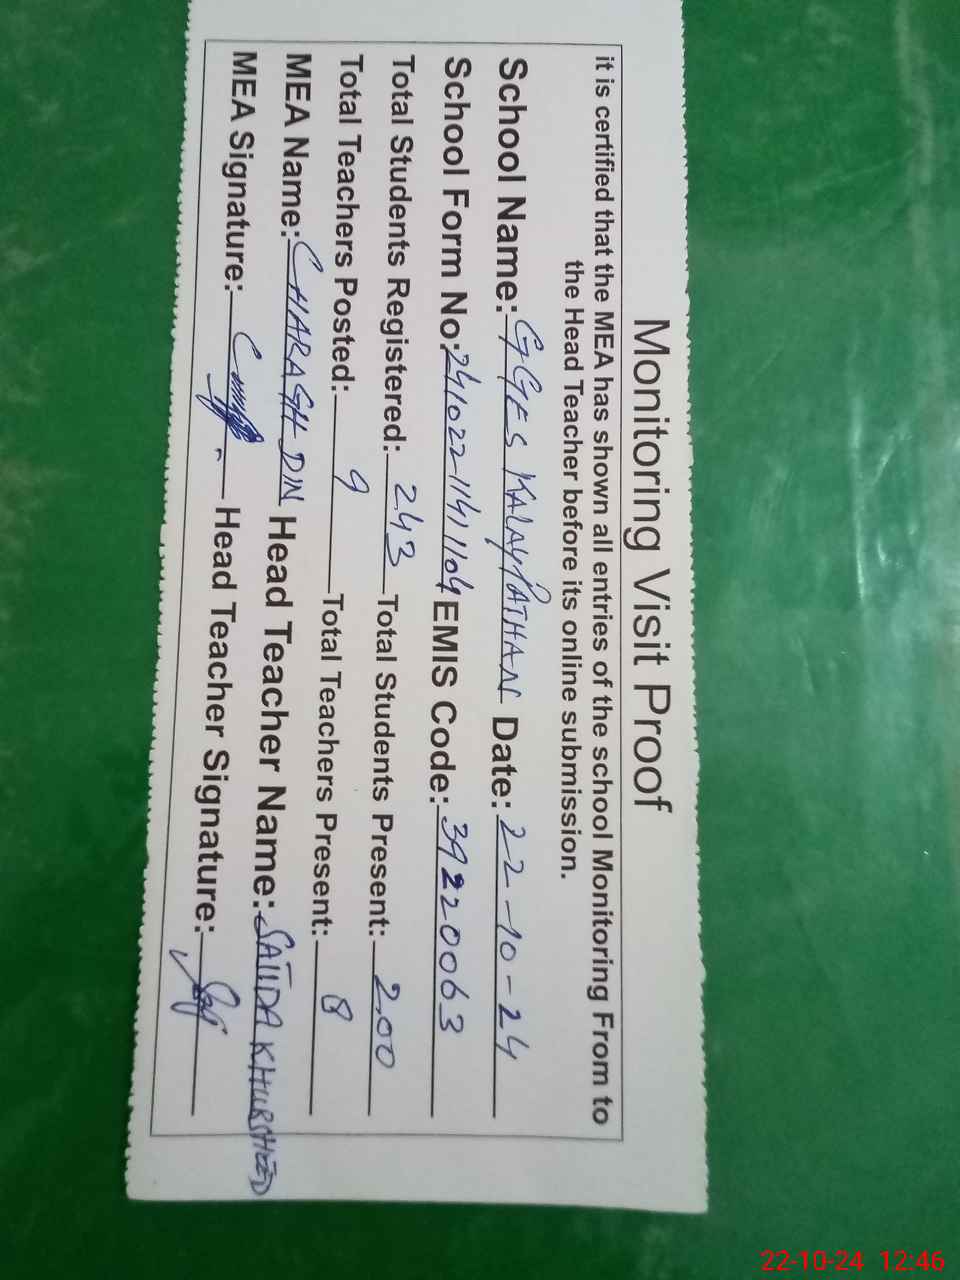 Monitoring Visit Proof
it is certified that the MEA has shown all entries of the school Monitoring From to
the Head Teacher before its online submission.
School Name: GGES KALAY PATHAN Date: 22-10-24
School Form No: 241022-1141104 EMIS Code: 39220063
Total Students Registered: 243 Total Students Present: 200
Total Teachers Posted: 9 Total Teachers Present: 8
MEA Name: CHARAGH DIN Head Teacher Name: SAJIDA KHURSHEED
MEA Signature: Head Teacher Signature:
22-10-24 12:46